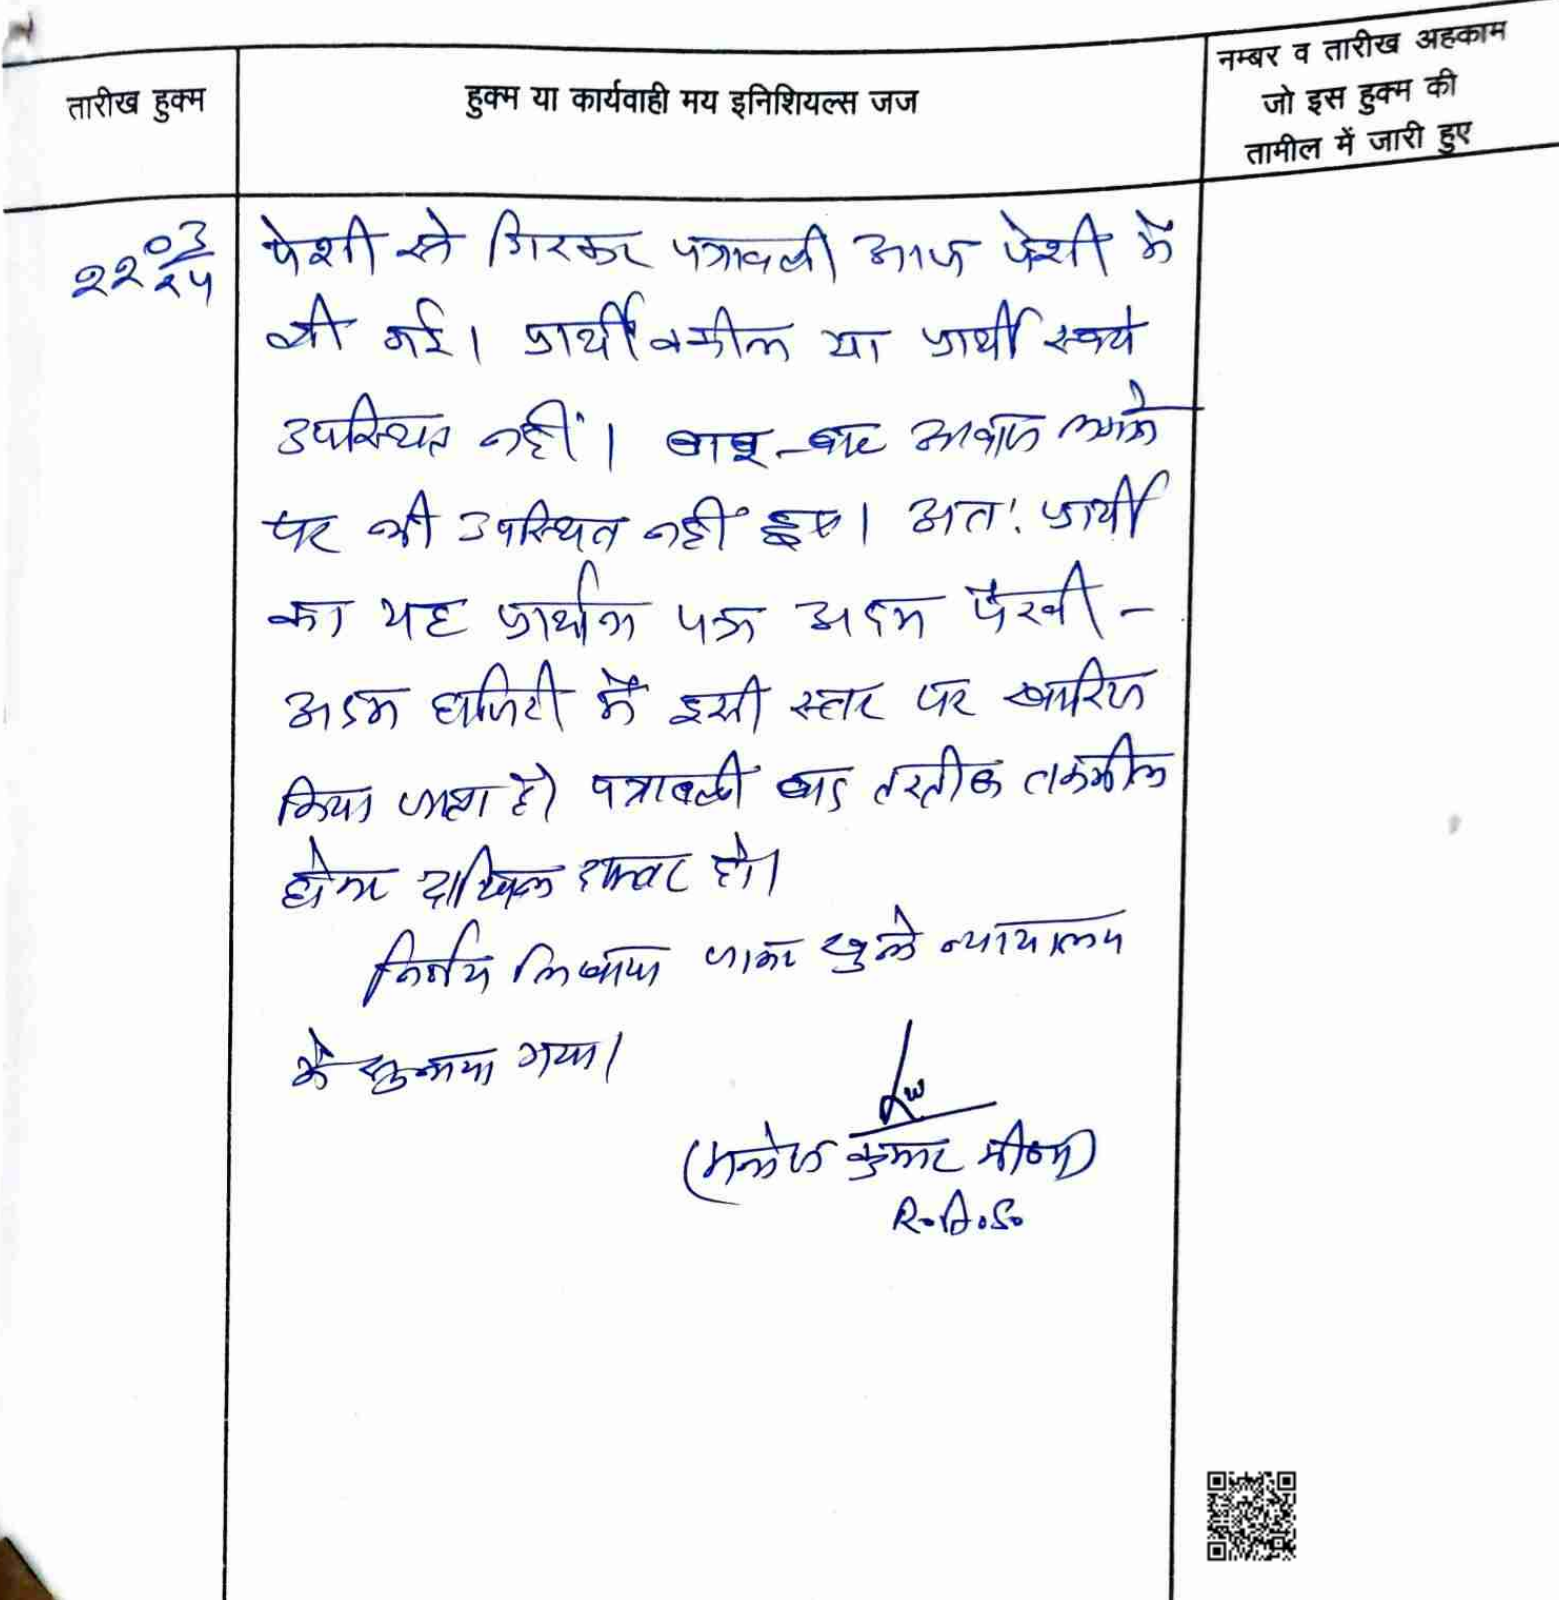 तारीख हुक्म
हुक्म या कार्यवाही मय इनिशियल्स जज
नम्बर व तारीख अहकाम
जो इस हुक्म की
तामील में जारी हुए
22 03/25
पेशी से गिरकर पत्रावली आज पेशी में
ली गई। प्रार्थी वकील या प्रार्थी स्वयं
उपस्थित नहीं। बार-बार आवाज लगाने
पर भी उपस्थित नहीं हुए। अतः प्रार्थी
का यह प्रार्थना पत्र अदम पैरवी -
अदम हाजिरी में इसी स्तर पर खारिज
किया जाता है। पत्रावली बाद तरतीब तकमील
होकर दाखिल दफ्तर हो।
निर्णय लिखाया जाकर खुले न्यायालय
में सुनाया गया।
(मनोज कुमार मीणा)
R.A.S.